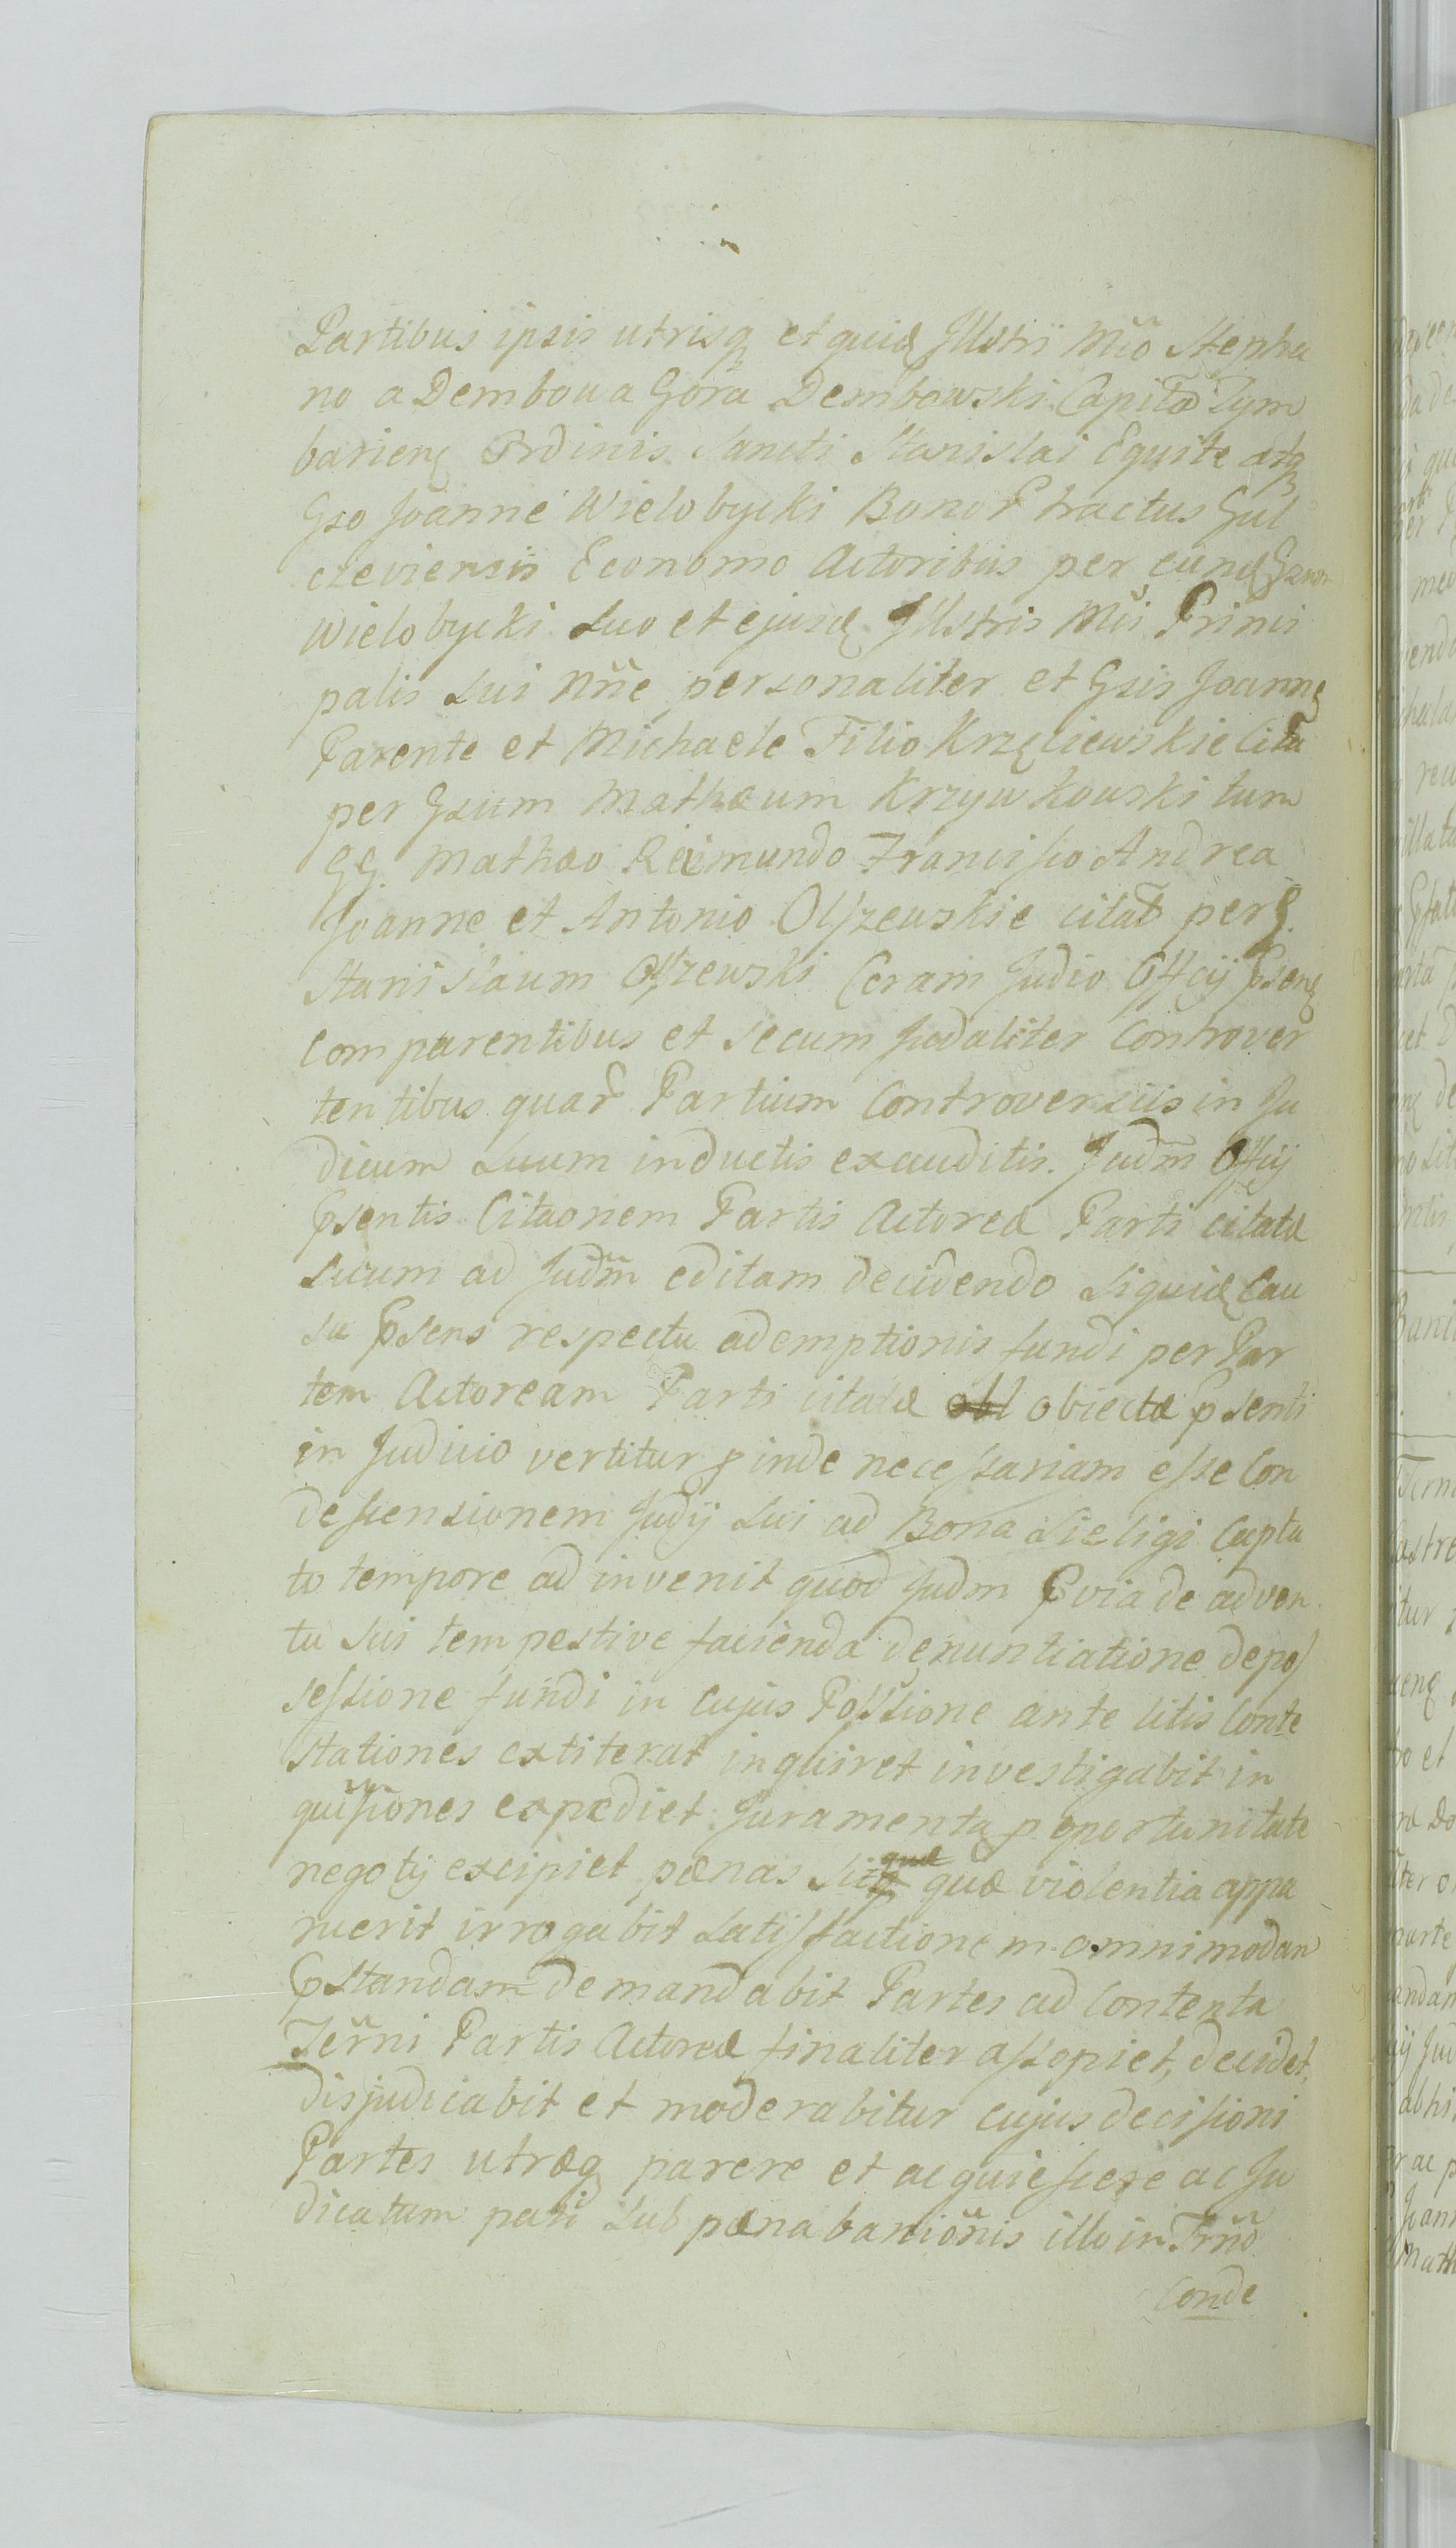 Partibus ipsis utrisq et quid Jllstri Mco Stepha
no a Dembowa Gora Dembowski Capito Tym
bariens Ordinis Sancti Stanislai Equite atq
Gso Joanne Wielobycki Bonor Tractus Gul
czeviensis Economo Actoribus per eund Gsum
Wielobycki suo et ejusd Jllstris Mci Princi
palis sui nne personaliter et Gsis Joanne
Parente et Michaele Filio Krzęciewskie Cita
per Gsum Mathæum Krzywkowski tum
GG Mathæo Reimundo Francisco Andrea
Joanne et Antonio Olszewskie citat per G.
Stanislaum Olszewski Coram Judio Officij psens
Comparentibus et secum Judaliter Controver
tentibus quar Partium Controversiis in Ju
dicium suum inductis exauditis. Judm Officij
psentis Citaonem Partis Actoreæ Parti citatæ
secum ad Judm editam decidendo siquid Cau
sa psens respectu ademptionis fundi per Par
tem Actoream Parti citatæ obl obiectæ psenti
in Judicio vertitur pinde necessariam esse Con
descensionem Judij sui ad Bona Sieligi Capta
to tempore adinvenit quod Judm pvia de adven
tu sui tempestive facienda denuntiatione de pos
sessione fundi in cujus Possione ante litis Conte
stationes extiterat inquiret investigabit in
quisiones expediet Juramenta p oportunitate
negotij excipiet pænas sicq quæ quæ violentia appa
ruerit irrogabit satisfactionem omnimodam
pstandam demandabit Partes ad Contenta
Termi Partis Actoreæ finaliter assopiet, decidet,
disjudicabit et moderabitur cujus decisioni
Partes utræq parere et acquiescere ac Ju
dicatum pati sub pæna bannionis illo in Trno
Conde